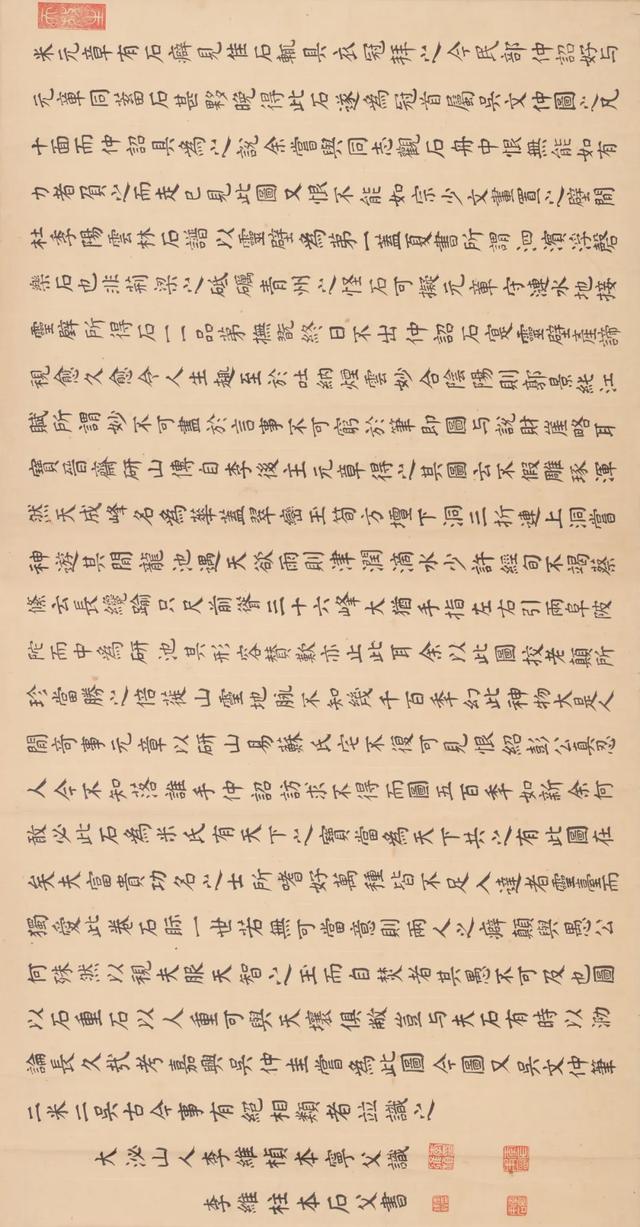 米元章有石癖見佳石輒具衣冠拜之今民部仲詔好与
元章同蓄石甚夥晚得此石遂為冠首屬吳文仲圖之凡
十面而仲詔具為之說余嘗與同志觀石舟中恨無能如有
力者負之而走已見此圖又恨不能如宗少文畫置之壁間
杜季陽雲林石譜以靈壁為第一蓋夏書所謂泗濱浮磬
樂石也非荊梁之砥礪青州之怪石可擬元章守漣水地接
靈壁所得石一一品第撫翫終日不出仲詔石寔靈壁產諦
視愈久愈令人生趣至於吐納煙雲妙合陰陽則郭景純江
賦所謂妙不可盡於言事不可窮於筆即圖与說財崖略耳
寶晉齋研山傳自李後主元章得之其圖云不假雕琢渾
然天成峰名為華蓋翠巒玉筍方壇下洞三折連上洞嘗
神遊其間龍池遇天欲雨則津潤滴水少許經旬不竭蔡
絛云長纔踰只尺前聳三十六峰大猶手指左右引兩阜陂
陀而中為研池其形容贊歎亦止此耳余以此圖挍老顛所
珍當勝之倍蓰山靈地脈不知幾千百季幻此神物大是人
間奇事元章以研山易蘇氏宅不復可見恨紹彭公真忍
人今不知落誰手仲詔訪求不得而圖五百季如新余何
敢必此石為米氏有天下之寶當為天下共之有此圖在
矣夫富貴功名之士所嗜好萬種皆不足入達者靈臺而
獨愛此卷石眎一世若無可當意則兩人之癖顛與愚公
何殊然以視夫服天智之玉而自焚者其愚不可及也圖
以石重石以人重可與天壤俱敝豈与夫石有時以泐
論長久弐考嘉興吳仲圭嘗為此圖今圖又吳文仲筆
二米二吳古今事有絕相類者竝識之
大泌山人李維楨本寧父識
李維柱本石父書